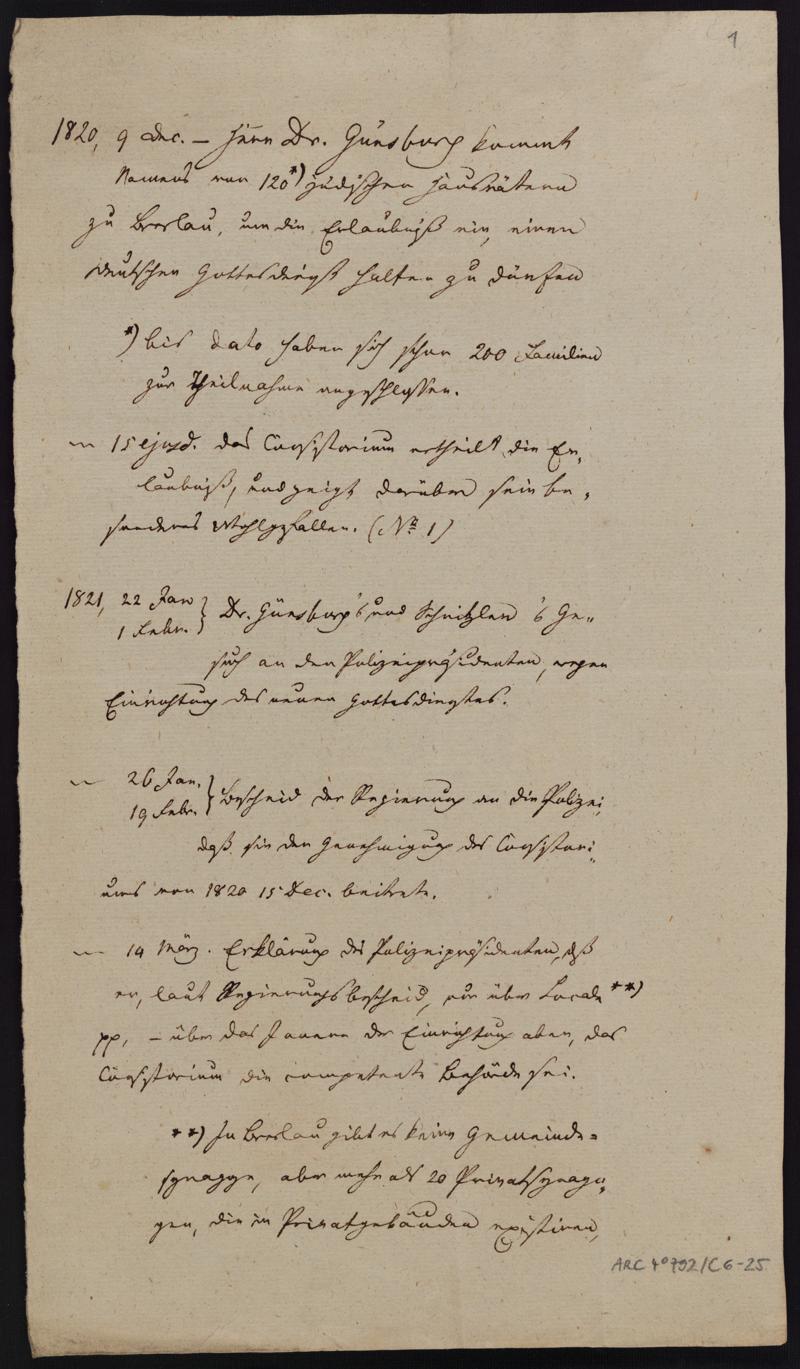 1
1820, 9 Dec. – Herr Dr. Günsburg kommt
Namens von 120 *) jüdischen Hausvätern
zu Breslau, um die Erlaubniß ein, einen
deutschen Gottesdienst halten zu dürfen
*) bis dato haben sich schon 200 Familien
zur Theilnahme angeschlossen.
— 15 ejusd. das Consistorium ertheilt die Er„
laubniß, und zeigt darüber sein be„
sonderes Wohlgefallen. (No 1)
1821, 22 Jan
1 Febr. } Dr. Günsburg's und Schnitzler 's Ge„
such an den Polizeipräsidenten, wegen
Einrichtung des neuen Gottesdienstes.
— 26 Jan.
19 Febr. } Bescheid der Regierung an die Polizei,
daß sie der Genehmigung des Consistori„
ums von 1820 15 Dec. beitrete.
— 14 März. Erklärung des Polizeipräsidenten, daß
er, laut Regierungsbescheid, nur über Locale **)
pp, – über das Innere der Einrichtung aber, das
Consistorium die competente Behörde sei.
**) In Breslau gibt es keine Gemeinde=
synagoge, aber mehr als 20 Privatsynago„
gen, die in Privatgebäuden existiren,
ARC 4° 792/C6-25